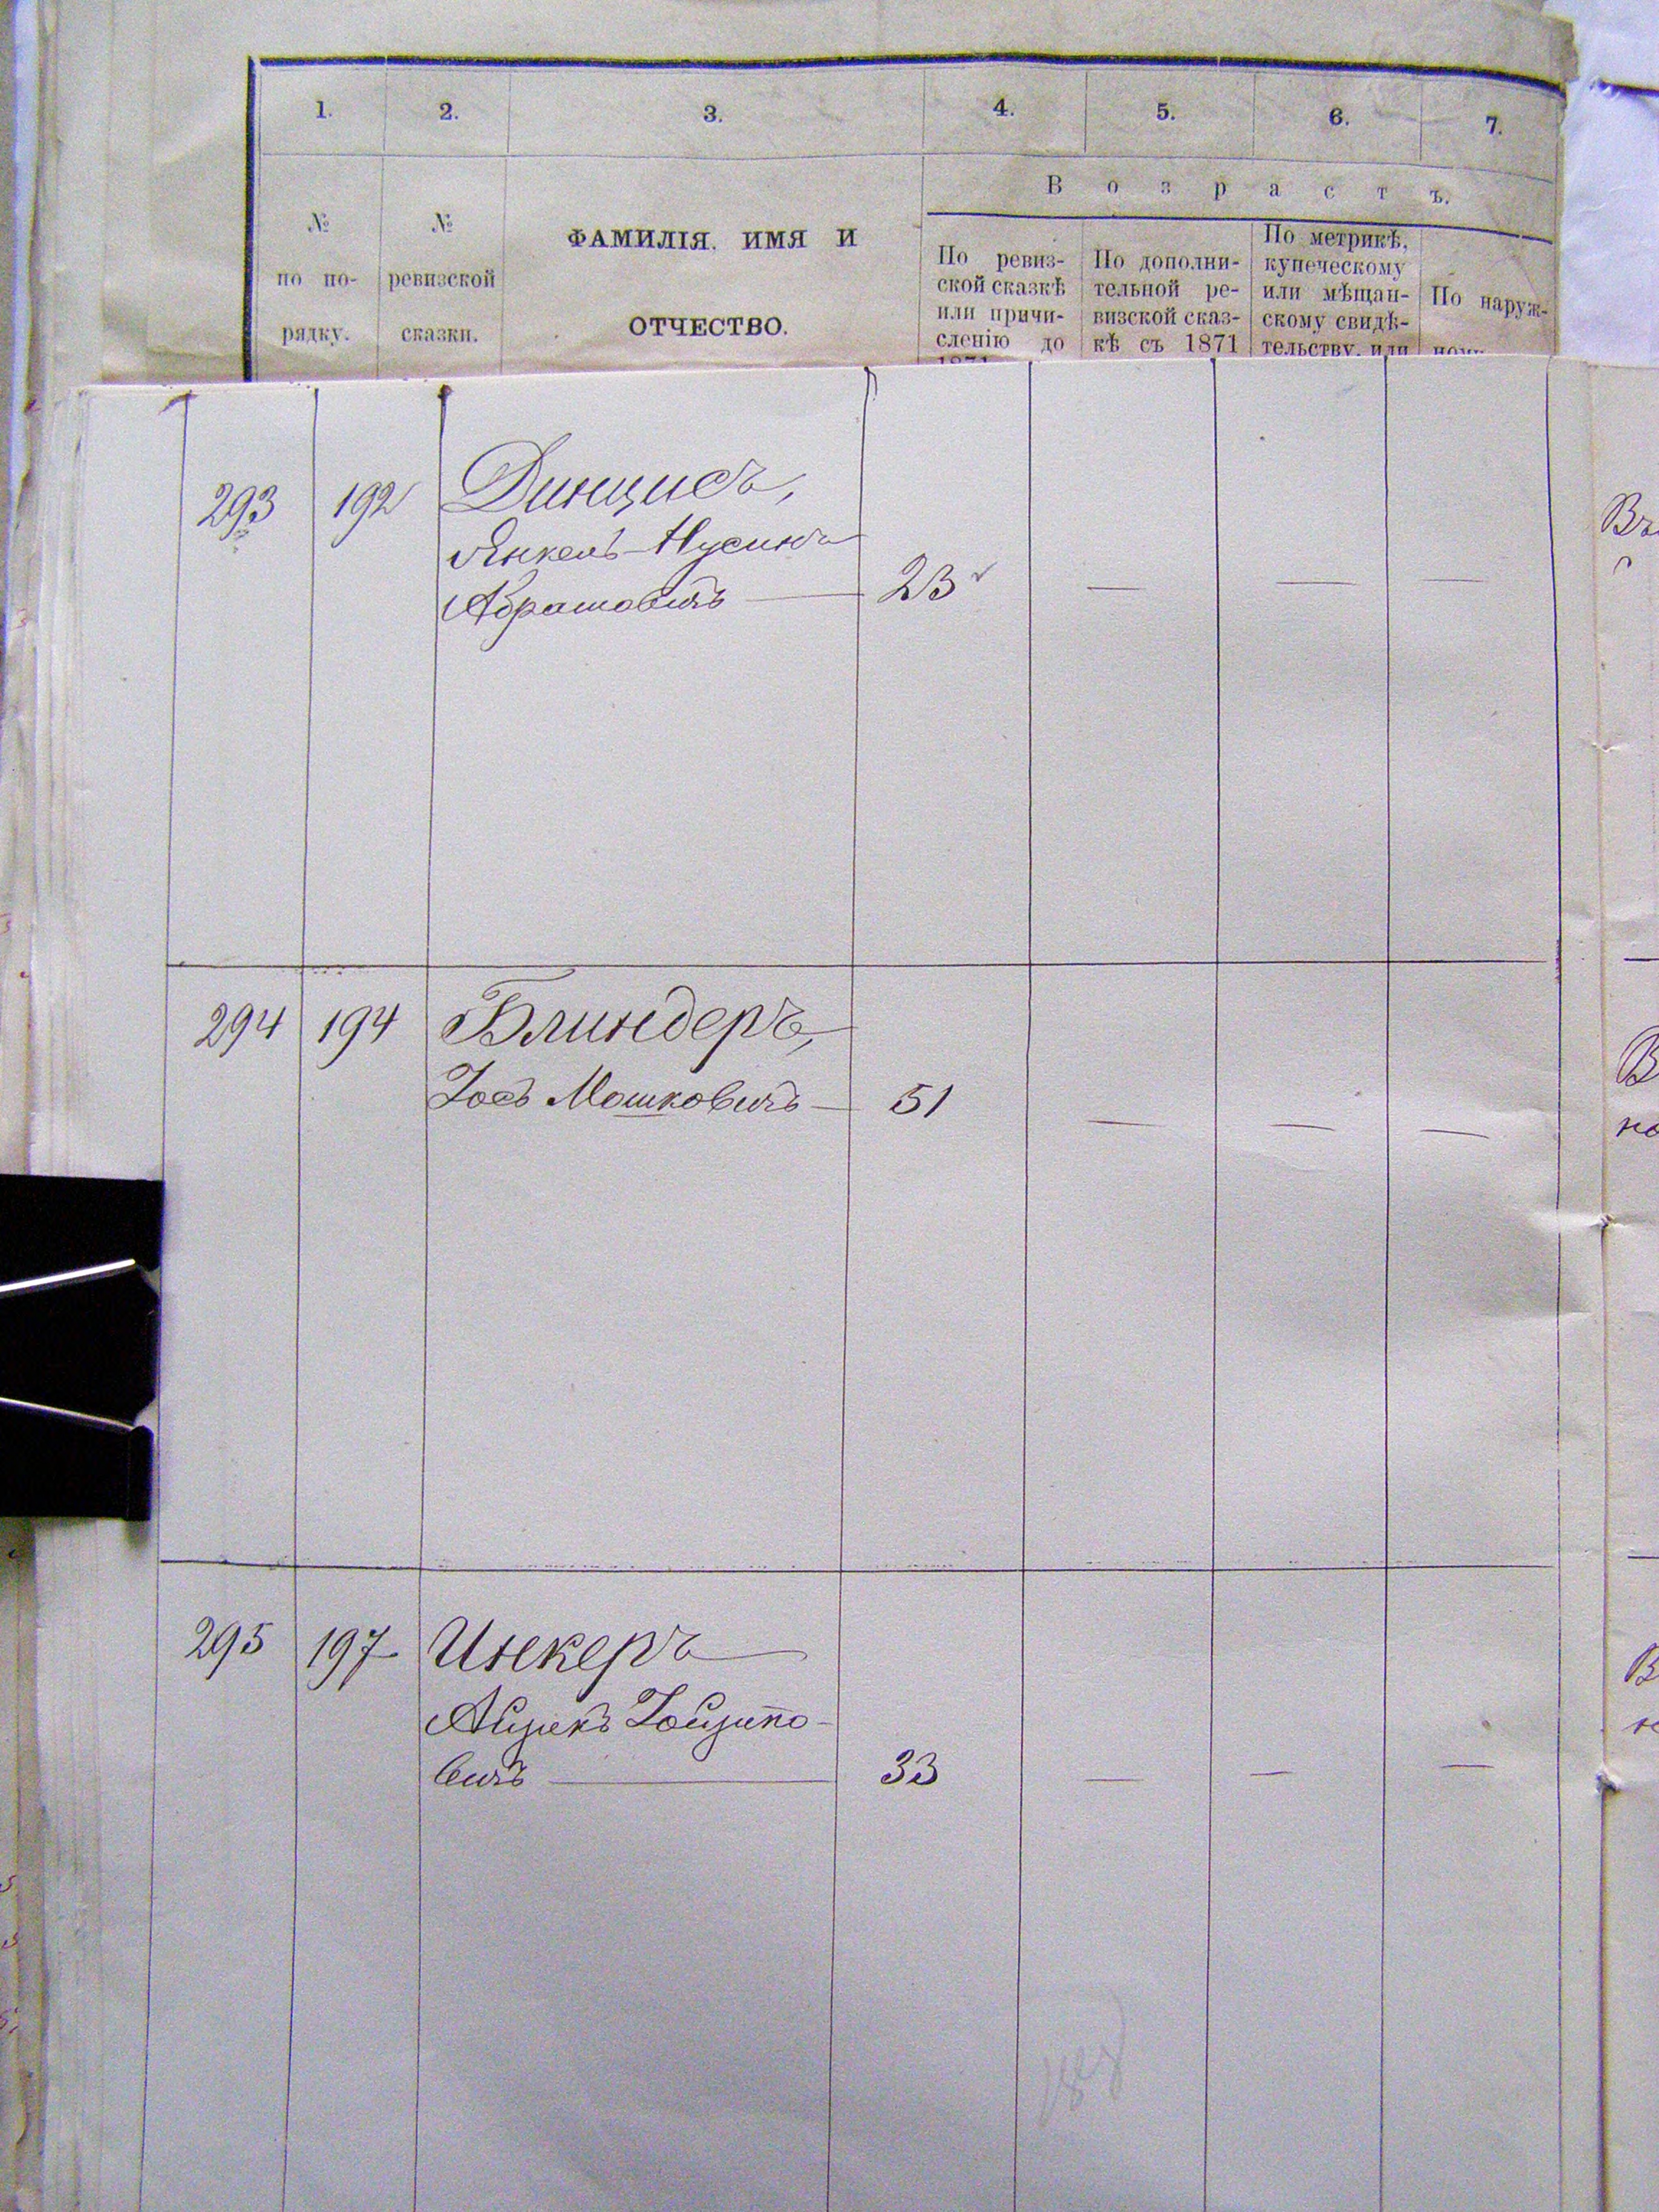 1. 2. 3. 4. 5. 6. 7.
Возрастъ.
№ по порядку.
№ ревизской сказки.
ФАМИЛІЯ. ИМЯ И
ОТЧЕСТВО.
По ревиз-
ской сказкѣ
или причи-
сленію до
1871
По дополни-
тельной ре-
визской сказ-
кѣ съ 1871
По метрикѣ,
купеческому
или мѣщан-
скому свидѣ-
тельству, или
По наруж-
293 192 Динцисъ,
Янкель-Нусинъ
Абрамовичъ — 23 — — —
294 194 Блиндеръ,
Іось Мошковичъ — 51 — — —
295 197 Инкеръ
Айзикъ
вичъ — 33 — — —